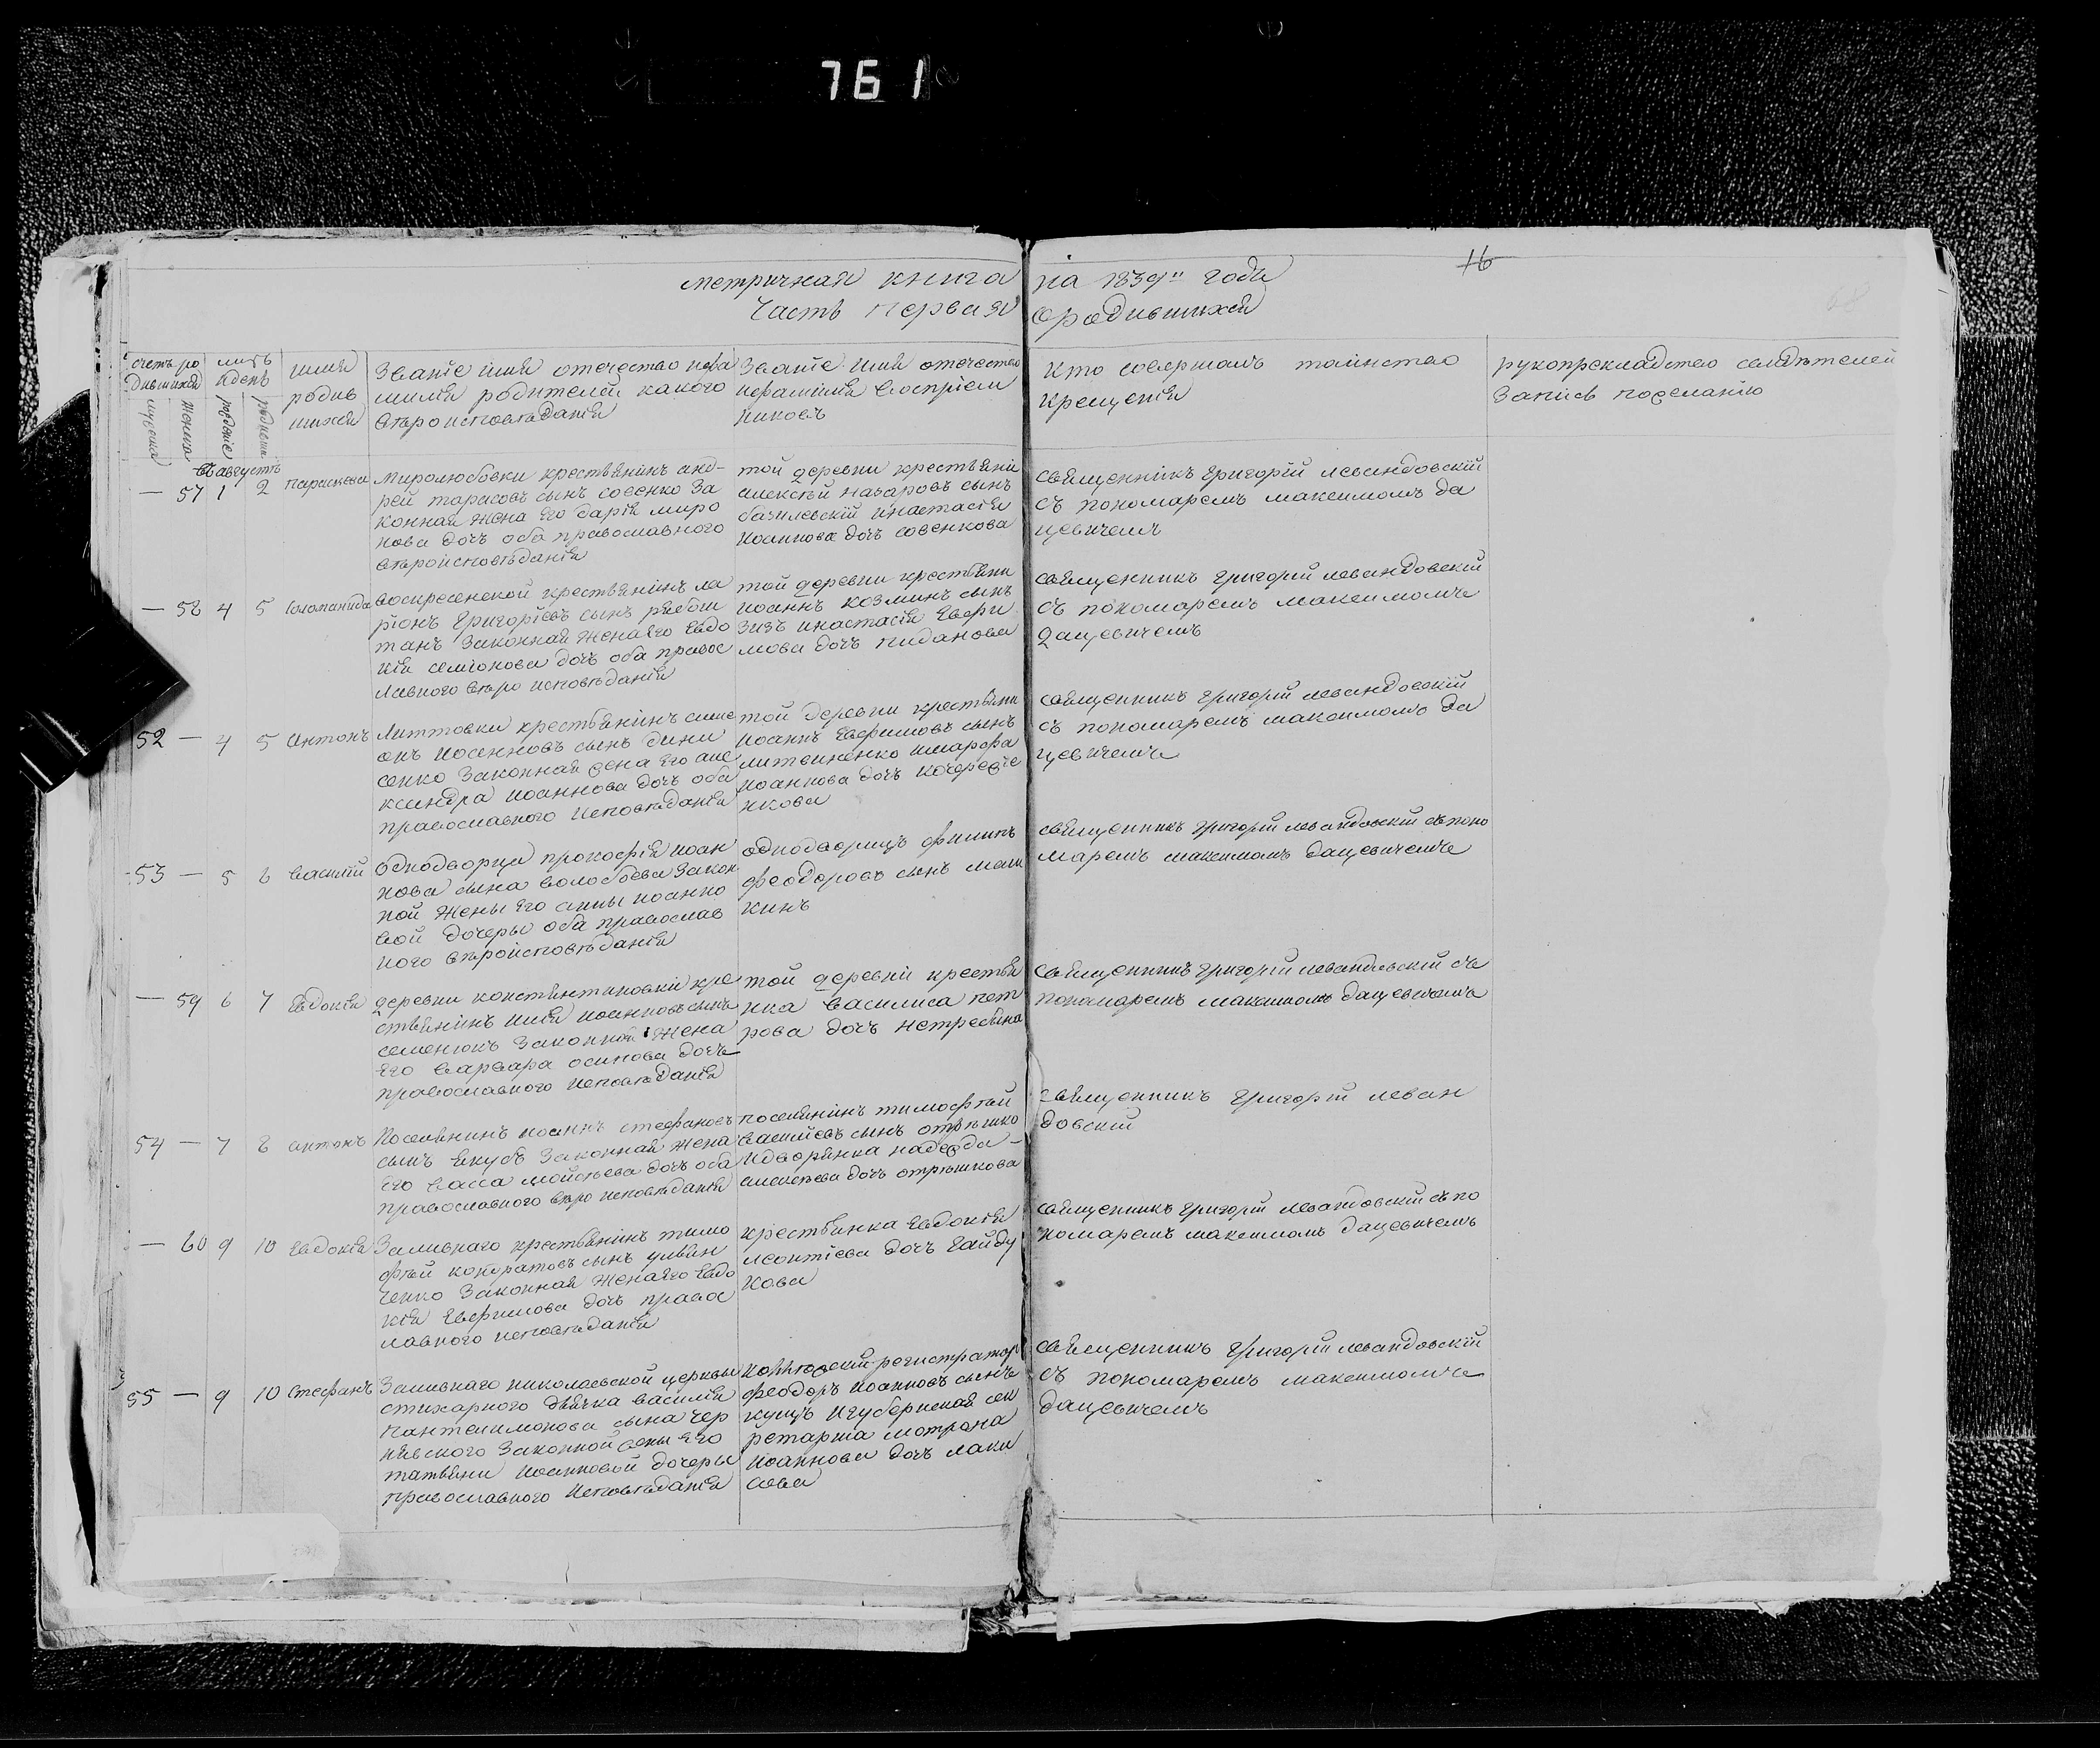 761
16
метричная книга на 1839го года
Часть первая о родившихся
счетъ ро
дившихся
мужеска
женска
мць
идень
рожденіе
имя
родив
шихся
Званіе имя отечество ифа
милия родителей какого
вѣроисповѣданія
Званіе имя отечество
ифамилия воспріем
никовъ
Кто совершалъ таинство
крещенія
рукопрекладство
запись пожеланію
въ августѣ
— 57 1 2 Параскева
Миролюбовки крестьянинъ анд-
рей тарасовъ сынъ совенко за
конная жена его дарія миро
нова дочь оба православного
вѣроисповѣданія
той деревни крестьяни
алексѣй назаровъ сынъ
базилевскій инастасія
иоаннова дочь совенкова
священникъ григорій левандовскій
съ пономаремъ максимомъ да
цевичемъ
— 58 4 5 соломанида
воскресенской крестьянинъ ла
ріонъ григоріевъ сынъ рябош
танъ законная жена его евдо
кія семіонова дочь оба правос
лавного вѣро исповѣданія
той деревни крестьяни
иоаннъ козминъ сынъ
зизъ инастасія евфи
мова дочь пиданова
священникъ григорій левандовскій
съ пономаремъ максимомъ
дацевичемъ
52 — 4 5 антонъ
Литтовки крестьянинъ симе
онъ иоанновъ сынъ дени
сенко законная жена его але
ксандра иоаннова дочь оба
православного исповѣданія
той деревни крестьяни
иоаннъ евфимовъ сынъ
литвиненко имарфа
иоаннова дочь кочереже
нкова
священникъ григорій левандовскій
съ пономаремъ максимомъ да
цевичемъ
53 — 5 6 василій
Однодворца прокофія иоан
нова сына волобоева закон
ной жены его анны иоанно
вой дочеры оба православ
ного вѣроисповѣданія
однодворецъ филипъ
феодоровъ сынъ мали
кинъ
священникъ григорій левандовскій съ поно
маремъ максимомъ дацевичемъ
— 59 6 7 Евдокія
деревни константиновки кре
стьянинъ илія иоанновъ сынъ
семенюкъ законная жена
его варвара осипова дочь
православного исповѣданія
той деревни крестья
нка василиса пет
рова дочь нетребина
священникъ григорій левандовскій съ
пономаремъ максимомъ дацевичемъ
54 — 7 8 антонъ
Поселянинъ иоаннъ стефановъ
сынъ якубъ законная жена
его васса мойсѣева дочь оба
православного вѣро исповѣданія
поселянинъ тимофѣй
василіевъ сынъ отрѣшко
идворянка надежда
алексѣева дочь отрѣшкова
священникъ григорій леван
довскій
— 60 9 10 Евдокія
Заливнаго крестьянинъ тимо
фѣй кондратовъ сынъ
ченко законная жена его евдо
кія евфимова дочь правос
лавного исповѣданія
крестьянка евдокія
леонтіева дочь гайду
кова
священникъ григорій левандовскій съ по
номаремъ максимомъ дацевичемъ
55 — 9 10 стефанъ
Заливнаго николаевской церквы
стихарного дьячка василія
пантелимонова сына чер
нявского законной жены его
татьяни иоанновой дочеры
православного исповѣданія
Коллежский регистратор
феодоръ иоанновъ сынъ
куицъ игубернская сек
ретарша мотрона
иоаннова дочь лаки
сова
священникъ григорій левандовскій
съ пономаремъ максимомъ
дацевичемъ